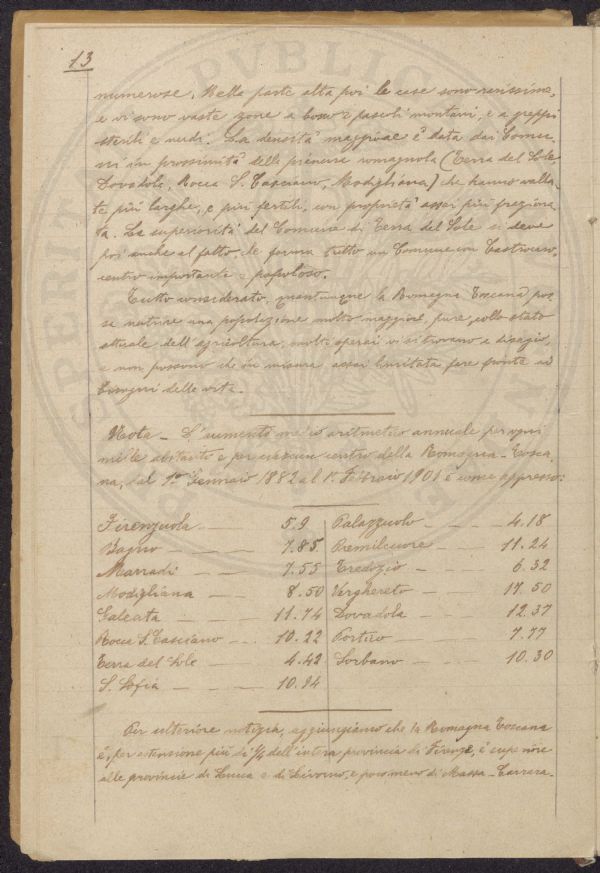 13
numerose. Nella parte alta poi le case sono rarissime,
e vi sono vaste zone a bosco e pascoli montani, e a greppi
sterili e nudi. La densità maggiore è data dai Comu-
ni in prossimità della pianura romagnola (Terra del Sole,
Dovadola, Rocca S. Casciano, Modigliana) che hanno valla-
te più larghe, e più fertili, con proprietà assai più fraziona-
ta. La superiorità del Comune di Terra del Sole si deve
poi anche al fatto, che forma tutto un Comune con Castrocaro,
centro importante e popoloso.
Tutto considerato, quantunque la Romagna Toscana pos-
sa nutrire una popolazione molto maggiore, pure, collo stato
attuale dell'agricoltura, molti operai vi si trovano a disagio,
e non possono che in misura assai limitata fare fronte ai
bisogni della vita.
Nota - L'aumento medio aritmetico annuale per ogni
mille abitanti e per ciascun centro della Romagna-Tosca-
na, dal 1° Gennaio 1882 al 1° Febbraio 1901 è come appresso:
Firenzuola 5.9 Palazzuolo 4.18
Bagno 7.85 Premilcuore 11.24
Marradi 7.55 Tredozio 6.32
Modigliana 8.50 Verghereto 17.50
Galeata 11.74 Dovadola 12.37
Rocca S. Casciano 10.22 Portico 7.77
Terra del Sole 4.42 Sorbano 10.30
S. Sofia 10.94
Per ulteriore notizia, aggiungiamo che la Romagna Toscana
è, per estensione più di 1/4 dell'intera provincia di Firenze, è superiore
alle provincie di Lucca e di Livorno, e poco meno di Massa-Carrara.